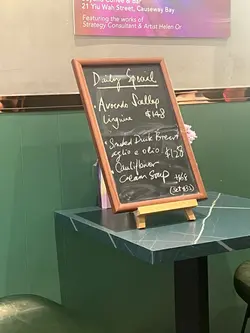 Coffee & Bar
21 Yiu Wah Street, Causeway Bay
Featuring the works of
Strategy Consultant & Artist Helen Or
Daily Special
• Avocado Scallop
Linguine $148
• Smoked Duck Breast
aglio e olio. $128
• Cauliflower
Cream Soup $68